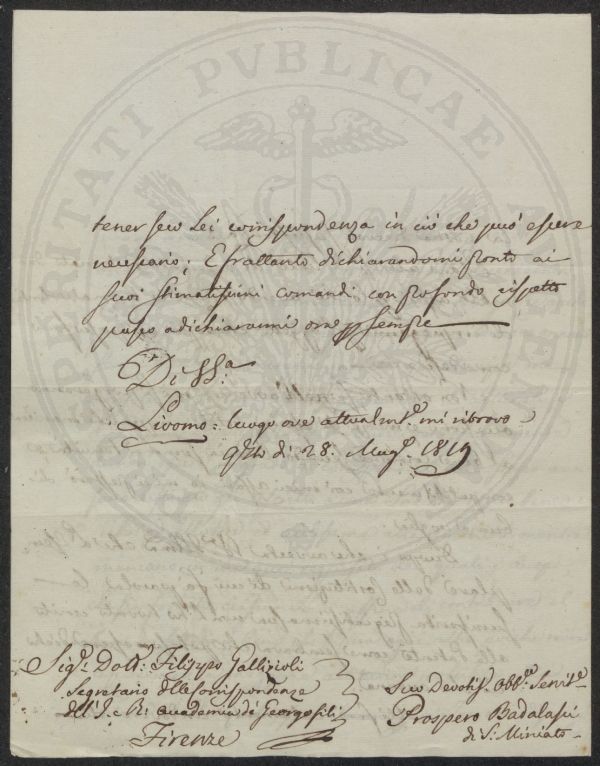 tener seco Lei corrispondenza in ciò che può essere
necessario; E frattanto dichiarandomi pronto ai
suoi stimatissimi comandi con profondo rispetto
passo a dichiararmi ora pp sempre
Di SS.a
Livorno: luogo ove attualmt.e mi ritrovo
q.sto dì 28. Mag.o 1819
Sig.r Dott: Filippo Gallizioli
Segretario delle Corrispondenze
dell' I. e R. Accademia dè Georgofili
Firenze
Suo Devotis.o Obb.o Servit.e
Prospero Badalassi
di S: Miniato
PROSPERITATI PVBLICAE AVGENDAE